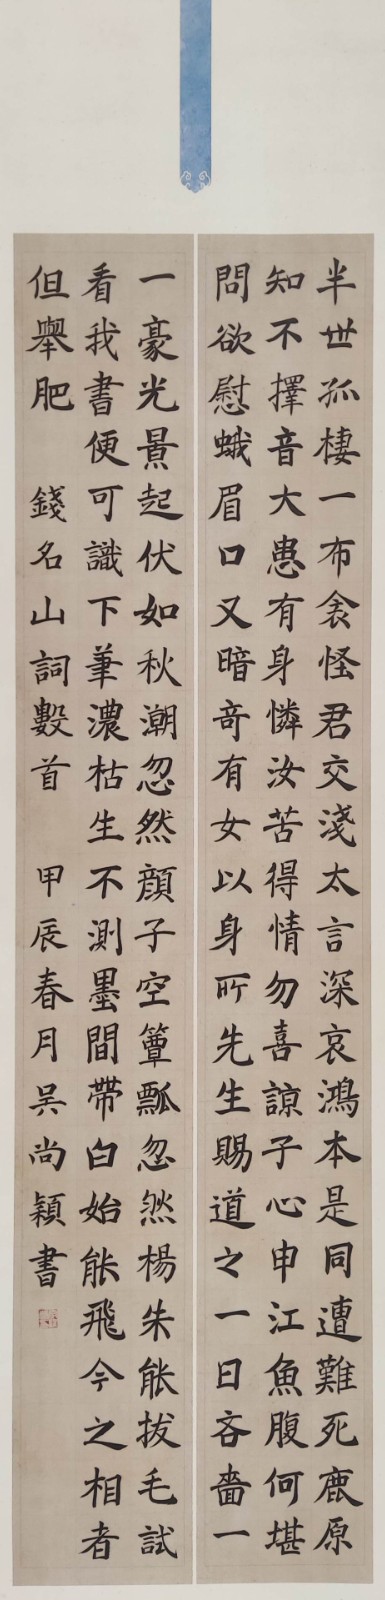 半世孤棲一布衾怪君交淺太言深哀鴻本是同遭難死鹿原
知不擇音大患有身憐汝苦得情勿喜諒子心申江魚腹何堪
問欲慰蛾眉口又暗奇有女以身所先生賜道之一日吝嗇一
一豪光景起伏如秋潮忽然顔子空簞瓢忽然楊朱能拔毛試
看我書便可識下筆濃枯生不測墨間帶白始能飛今之相者
但舉肥 錢名山詞數首 甲辰春月吳尚穎書